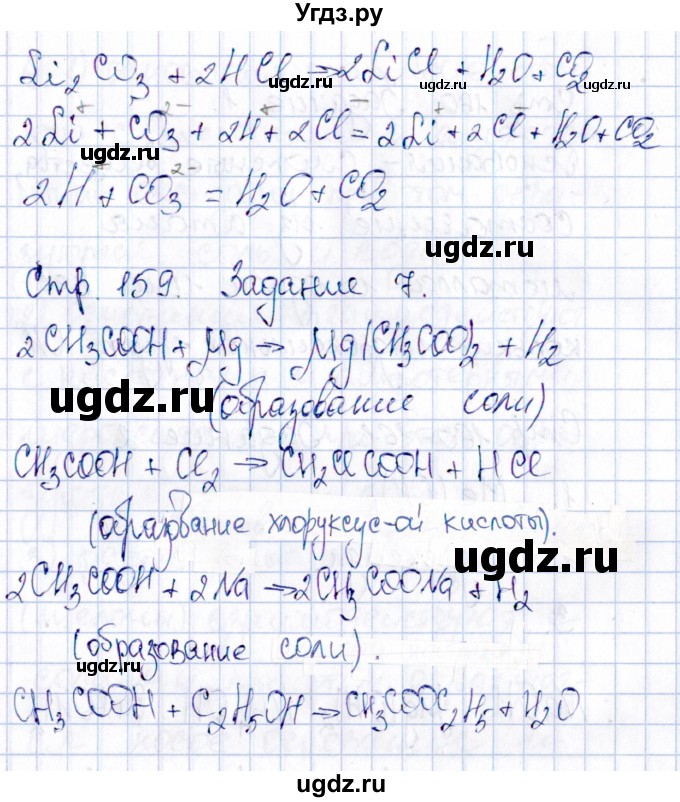 Угдз.ру
Li₂CO₃ + 2HCl → 2LiCl + H₂O + CO₂
ugdz.ru ugdz.ru ugdz.ru
2Li⁺ + CO₃²⁻ + 2H⁺ + 2Cl⁻ = 2Li⁺ + 2Cl⁻ + H₂O + CO₂
ugdz.ru
2H⁺ + CO₃²⁻ = H₂O + CO₂
ugdz.ru
Стр. 159. Задание 7.
2CH₃COOH + Mg → Mg(CH₃COO)₂ + H₂
ugdz.ru ugdz.ru
(образование соли)
CH₃COOH + Cl₂ → CH₂ClCOOH + HCl
ugdz.ru
(образование хлоруксус-ой кислоты).
ugdz.ru
2CH₃COOH + 2Na → 2CH₃COONa + H₂
ugdz.ru
(образование соли).
ugdz.ru
CH₃COOH + C₂H₅OH → CH₃COOC₂H₅ + H₂O
ugdz.ru
ugdz.ru